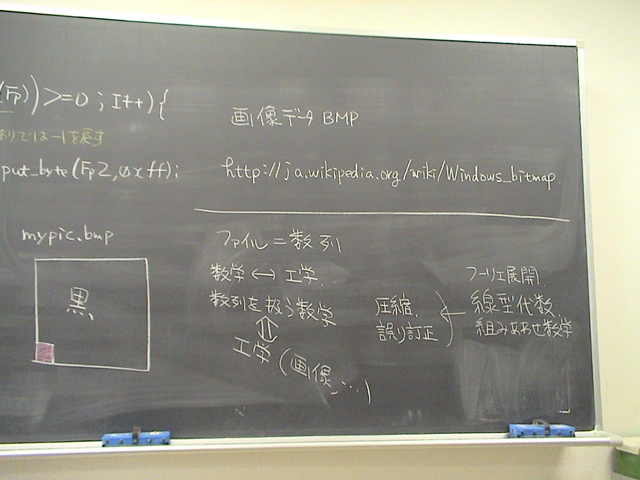 (Fp)) >= 0 ; I++) {
りでは-1を戻す
put_byte(Fp2, 0xff);
mypic.bmp
黒
画像データ BMP
http://ja.wikipedia.org/wiki/Windows_bitmap
ファイル = 数列
数学 ↔ 工学
数列を扱う数学
⇕
工学 (画像, ...)
圧縮,
誤り訂正
←
フーリエ展開,
線型代数,
組みあわせ数学